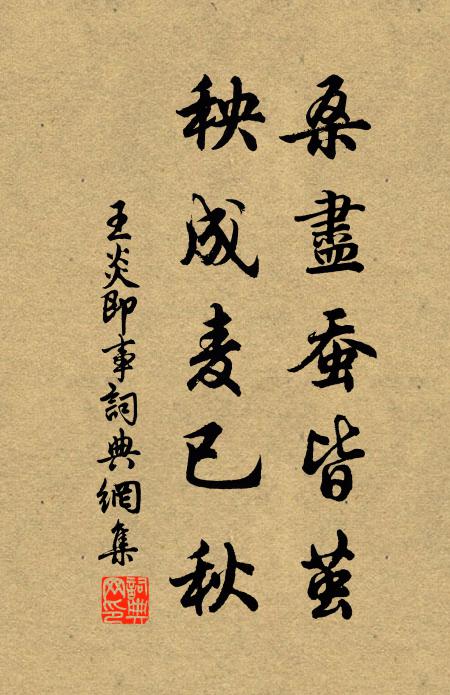 桑盡蚕皆茧
秧成麦已秋
王炎即事詞典網集
詞典网印